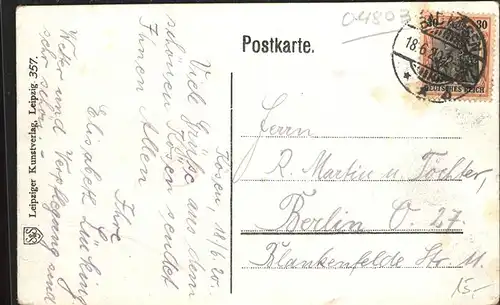 0480
Postkarte.
BAD KÖSEN
18.6.20
30 30
DEUTSCHES REICH
Kösen, 18/6.20.
Viele Grüße aus dem
schönen Kösen sendet
Ihnen Allen
Ihre
Elisabeth Lüking
Wetter und Verpflegung sind
sehr schön.
Leipziger Kunstverlag, Leipzig. 357.
Herrn
R. Martin u. Töchter,
Berlin O. 27
Blankenfelde Str. 11.
15,-